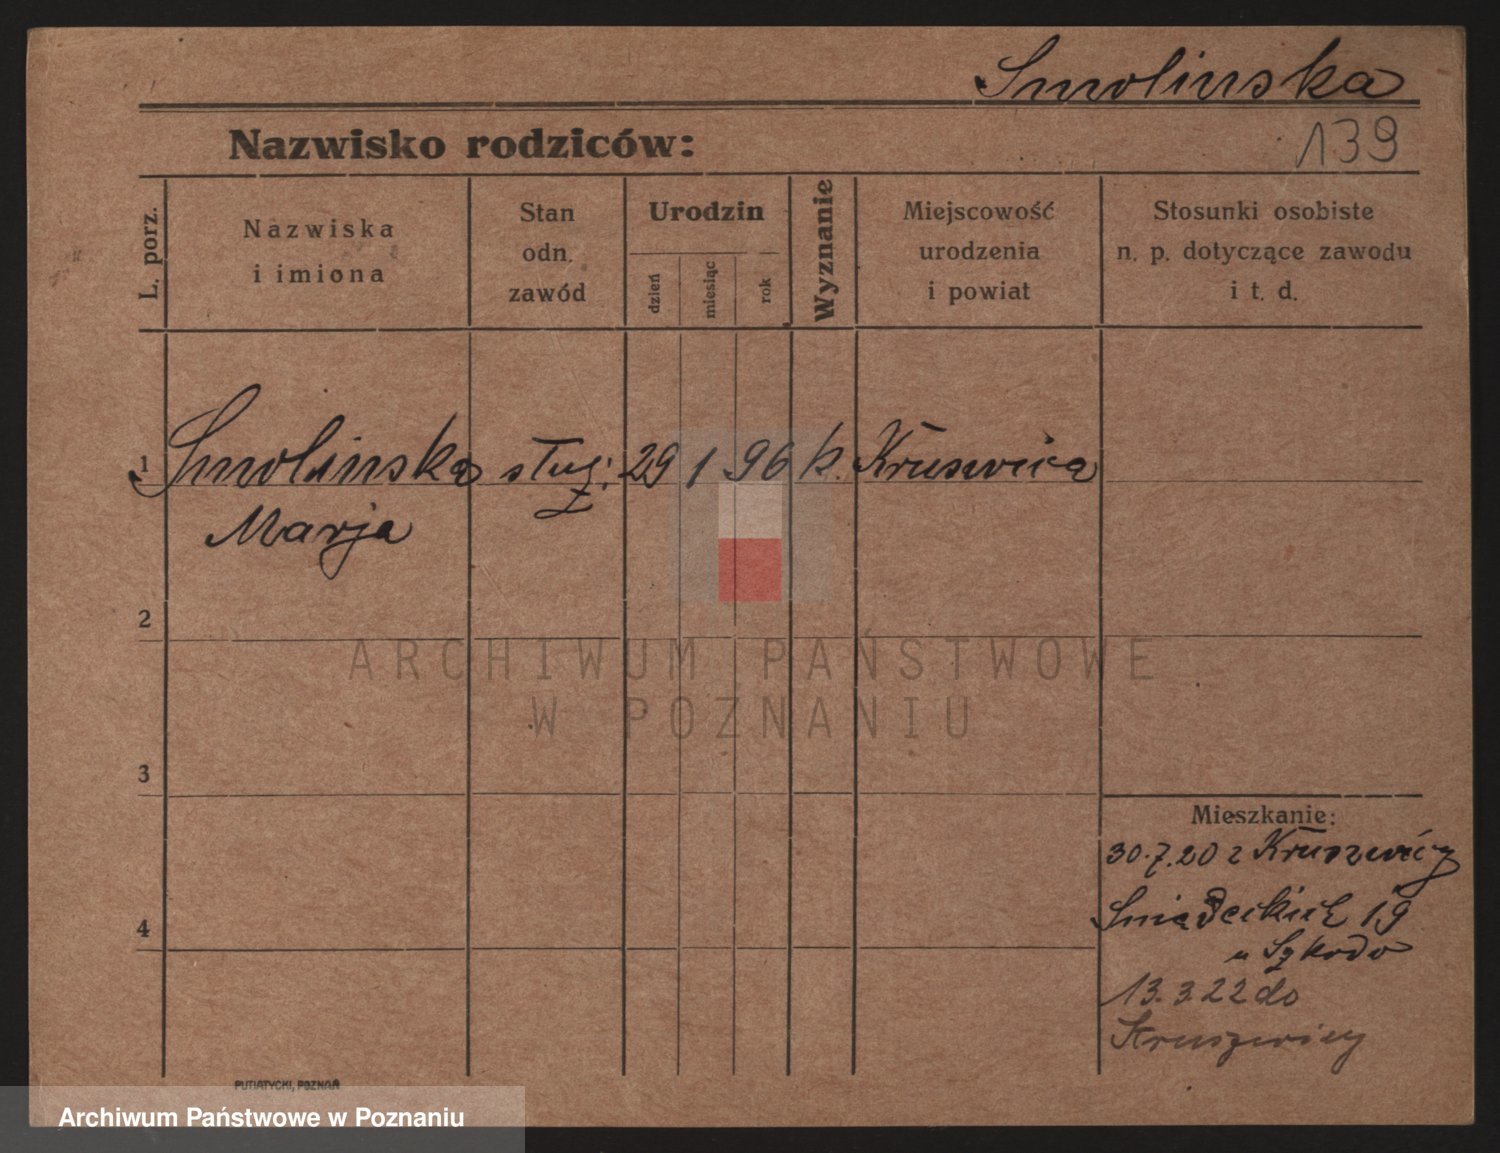 Smolinska
Nazwisko rodziców:
139
L. porz.
Nazwiska
i imiona
Stan
odn.
zawód
Urodzin
dzień
miesiąc
rok
Wyznanie
Miejscowość
urodzenia
i powiat
Stosunki osobiste
n. p. dotyczące zawodu
i t. d.
1 Smolinska służ: 29 1 96 k. Kruszwica
Marja
2
3
4
Mieszkanie:
30.7.20 z Kruszwicy
Sniadeckich 19
u Szkodo
13.3.22 do
Kruszwicy
PUTIATYCKI, POZNAŃ
ARCHIWUM PAŃSTWOWE
W POZNANIU
Archiwum Państwowe w Poznaniu